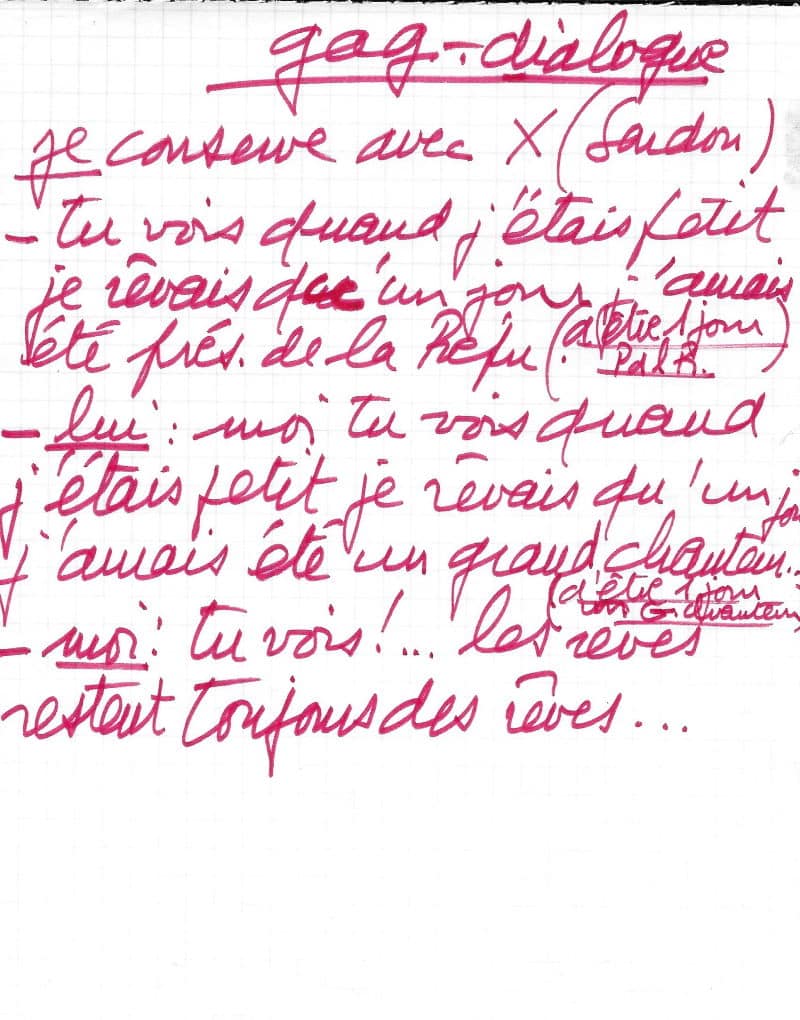 gag-dialogue
je converse avec X (Sardou)
- tu vois quand j'étais petit
je rêvais qu'un jour j'aurais
été prés. de la Répu (d'être 1 jour
P d l R.)
- lui : moi tu vois quand
j'étais petit je rêvais qu'un jour
j'aurais été un grand chanteur..
(d'être 1 jour
un G. chanteur)
- moi : tu vois !... les rêves
restent toujours des rêves...